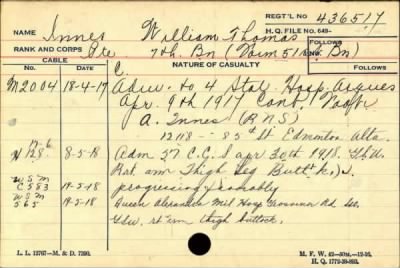 REGT'L No 436517
NAME Innes William Thomas
H.Q. FILE No. 649-
RANK AND CORPS Pte 7th. Bn (Form 51 Bn)
FOLLOWS
FOLLOWS
CABLE
No. DATE
NATURE OF CASUALTY
C.
M2004 18-4-17 Adm. to 4 Stat. Hosp. Arques
Apr. 9th 1917 Cont.
A. Innes (BNS)
12118 - 85th St Edmonton Alta.
8-5-18 Adm 57 C.C.S apr 30th 1918. G.S.W.
Rt. arm Thigh Leg Butt'k.
W S M
C583 14-5-18 progressing favorably
W S M
565 14-5-18 Queen Alexandra Mil Hosp Grosvenor Rd
Gsw. rt arm thigh buttock.
L. L. 12767—M. & D. 7280.
M. F. W. 42—50m.—12-16.
H. Q. 1772-39-893.